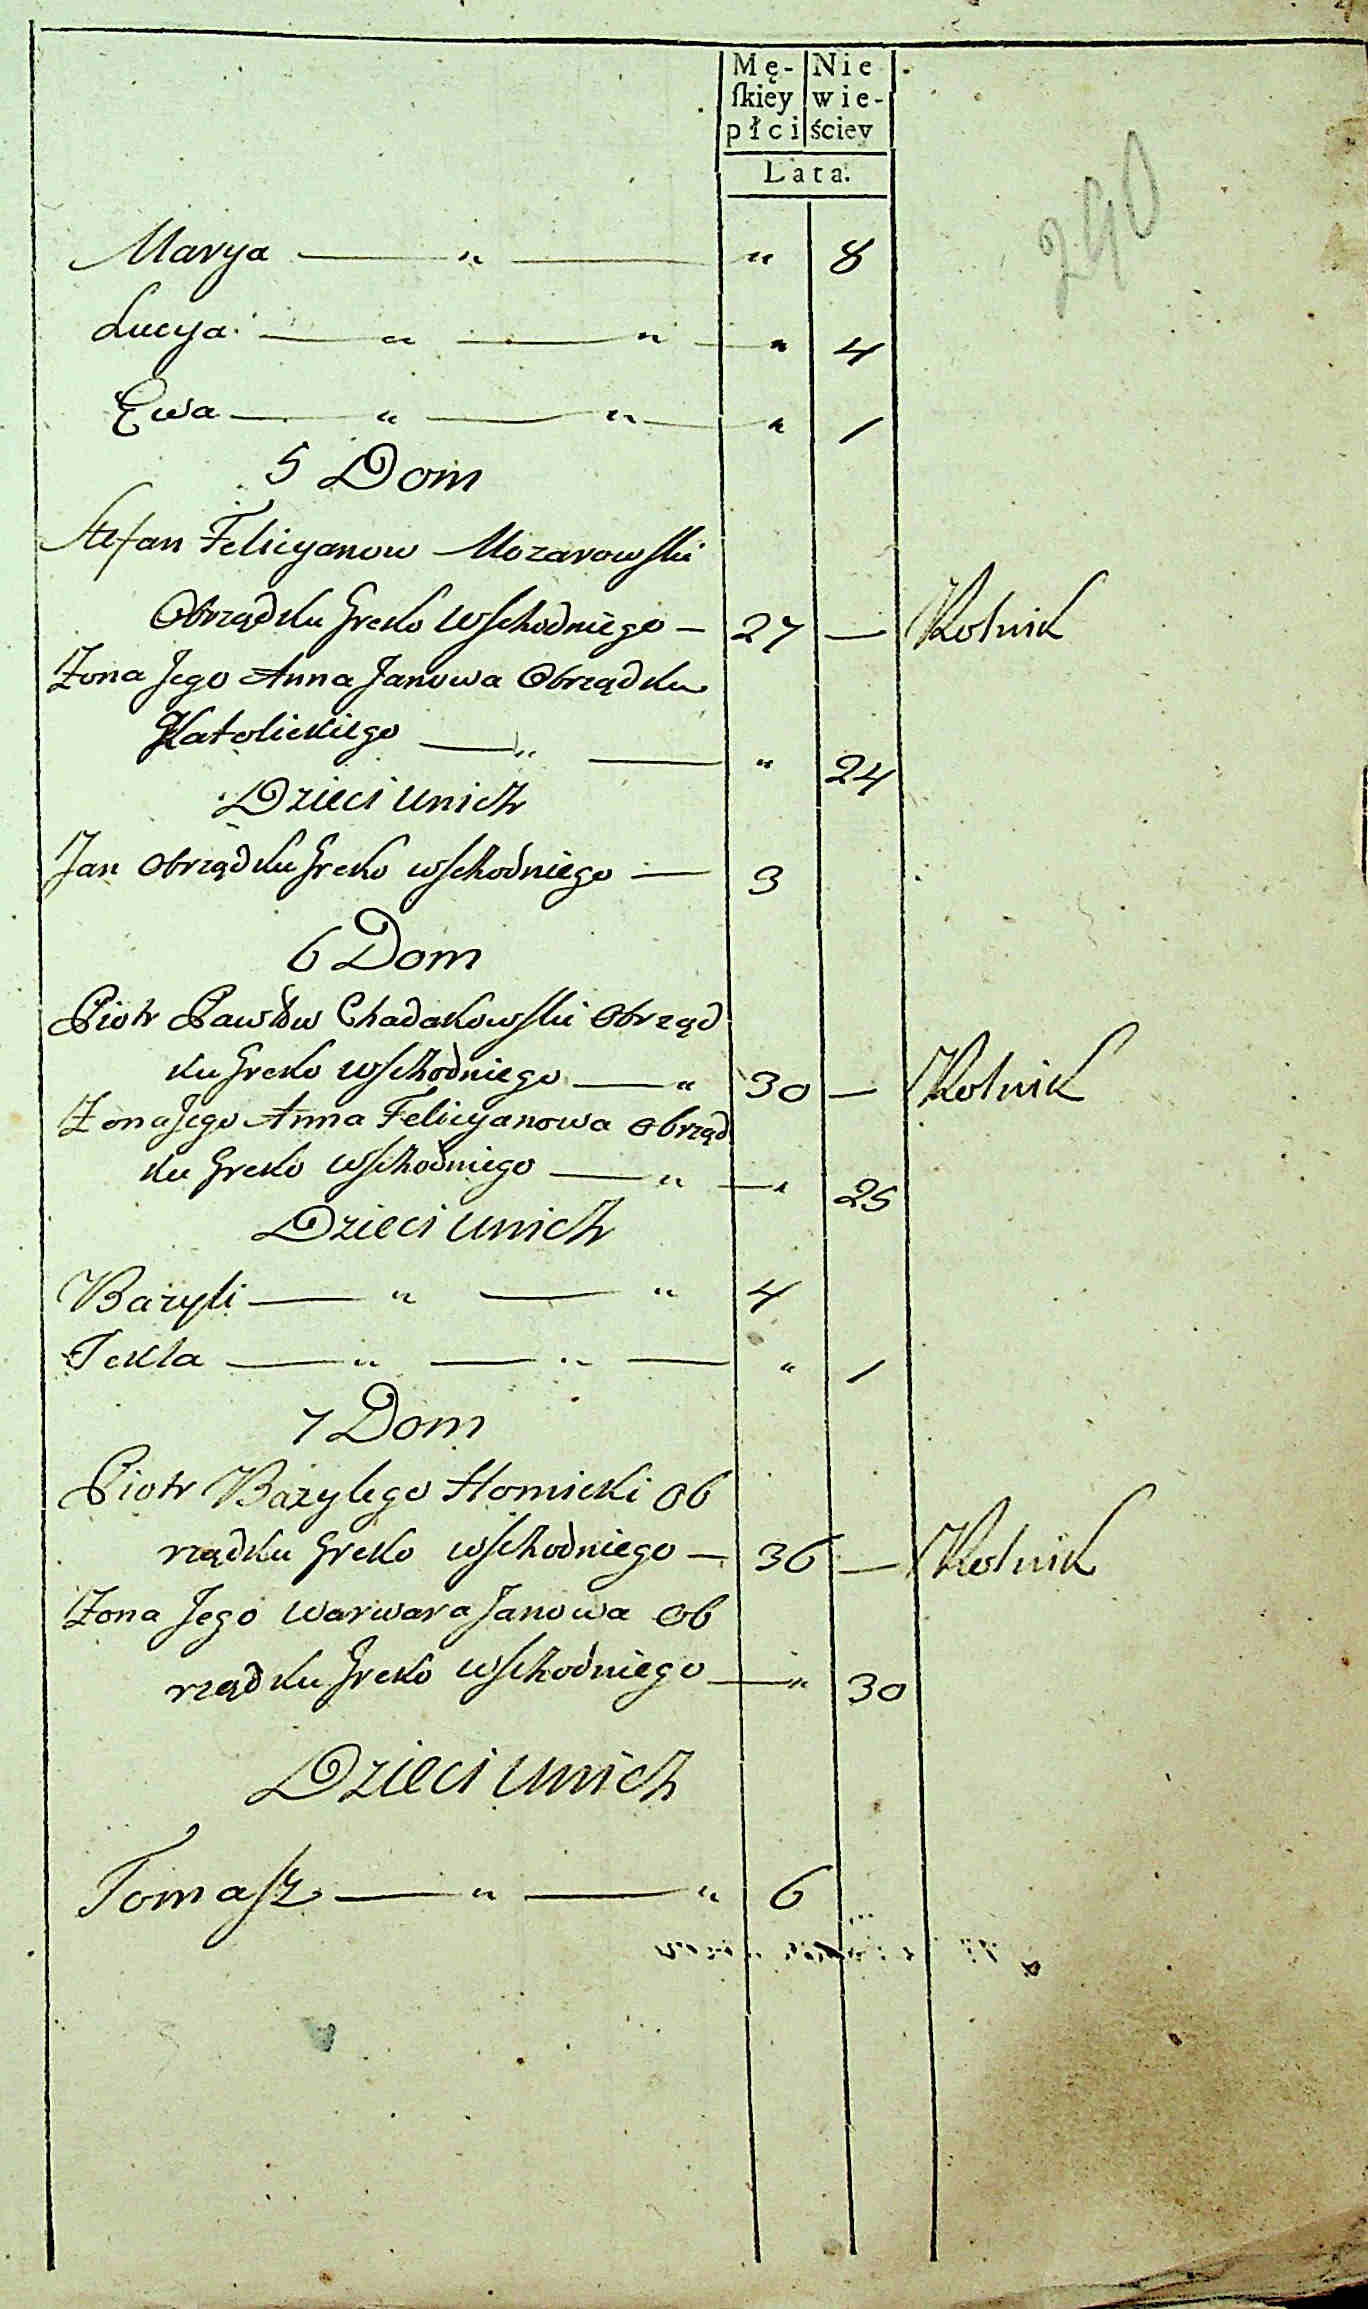 Mę- Nie
ſkiey wie-
płci ściey
Lata.
290
Marya — " — " 8
Lucya — " — " — " 4
Ewa — " — " — " 1
5 Dom
Stefan Felicyanow Mozarowſki
Obrządku Greko Wſchodniego — 27 — Rolnik
Żona Jego Anna Janowa Obrządku
Katolickiego — " — " 24
Dzieci unich
Jan Obrządku Greko wſchodniego — 3
6 Dom
Piotr Pawłow Chadakowſki Obrząd
ku Greko wſchodniego — " 30 — Rolnik
Żona Jego Anna Felicyanowa Obrząd
ku Greko wſchodniego — " — " 25
Dzieci unich
Bazyli — " — " 4
Tekla — " — " — " 1
7 Dom
Piotr Bazylego Homicki Ob
rządku Greko wſchodniego — 36 — Rolnik
Żona Jego Warwara Janowa Ob
rządku Greko wſchodniego — " 30
Dzieci unich
Tomaſz — " — " 6